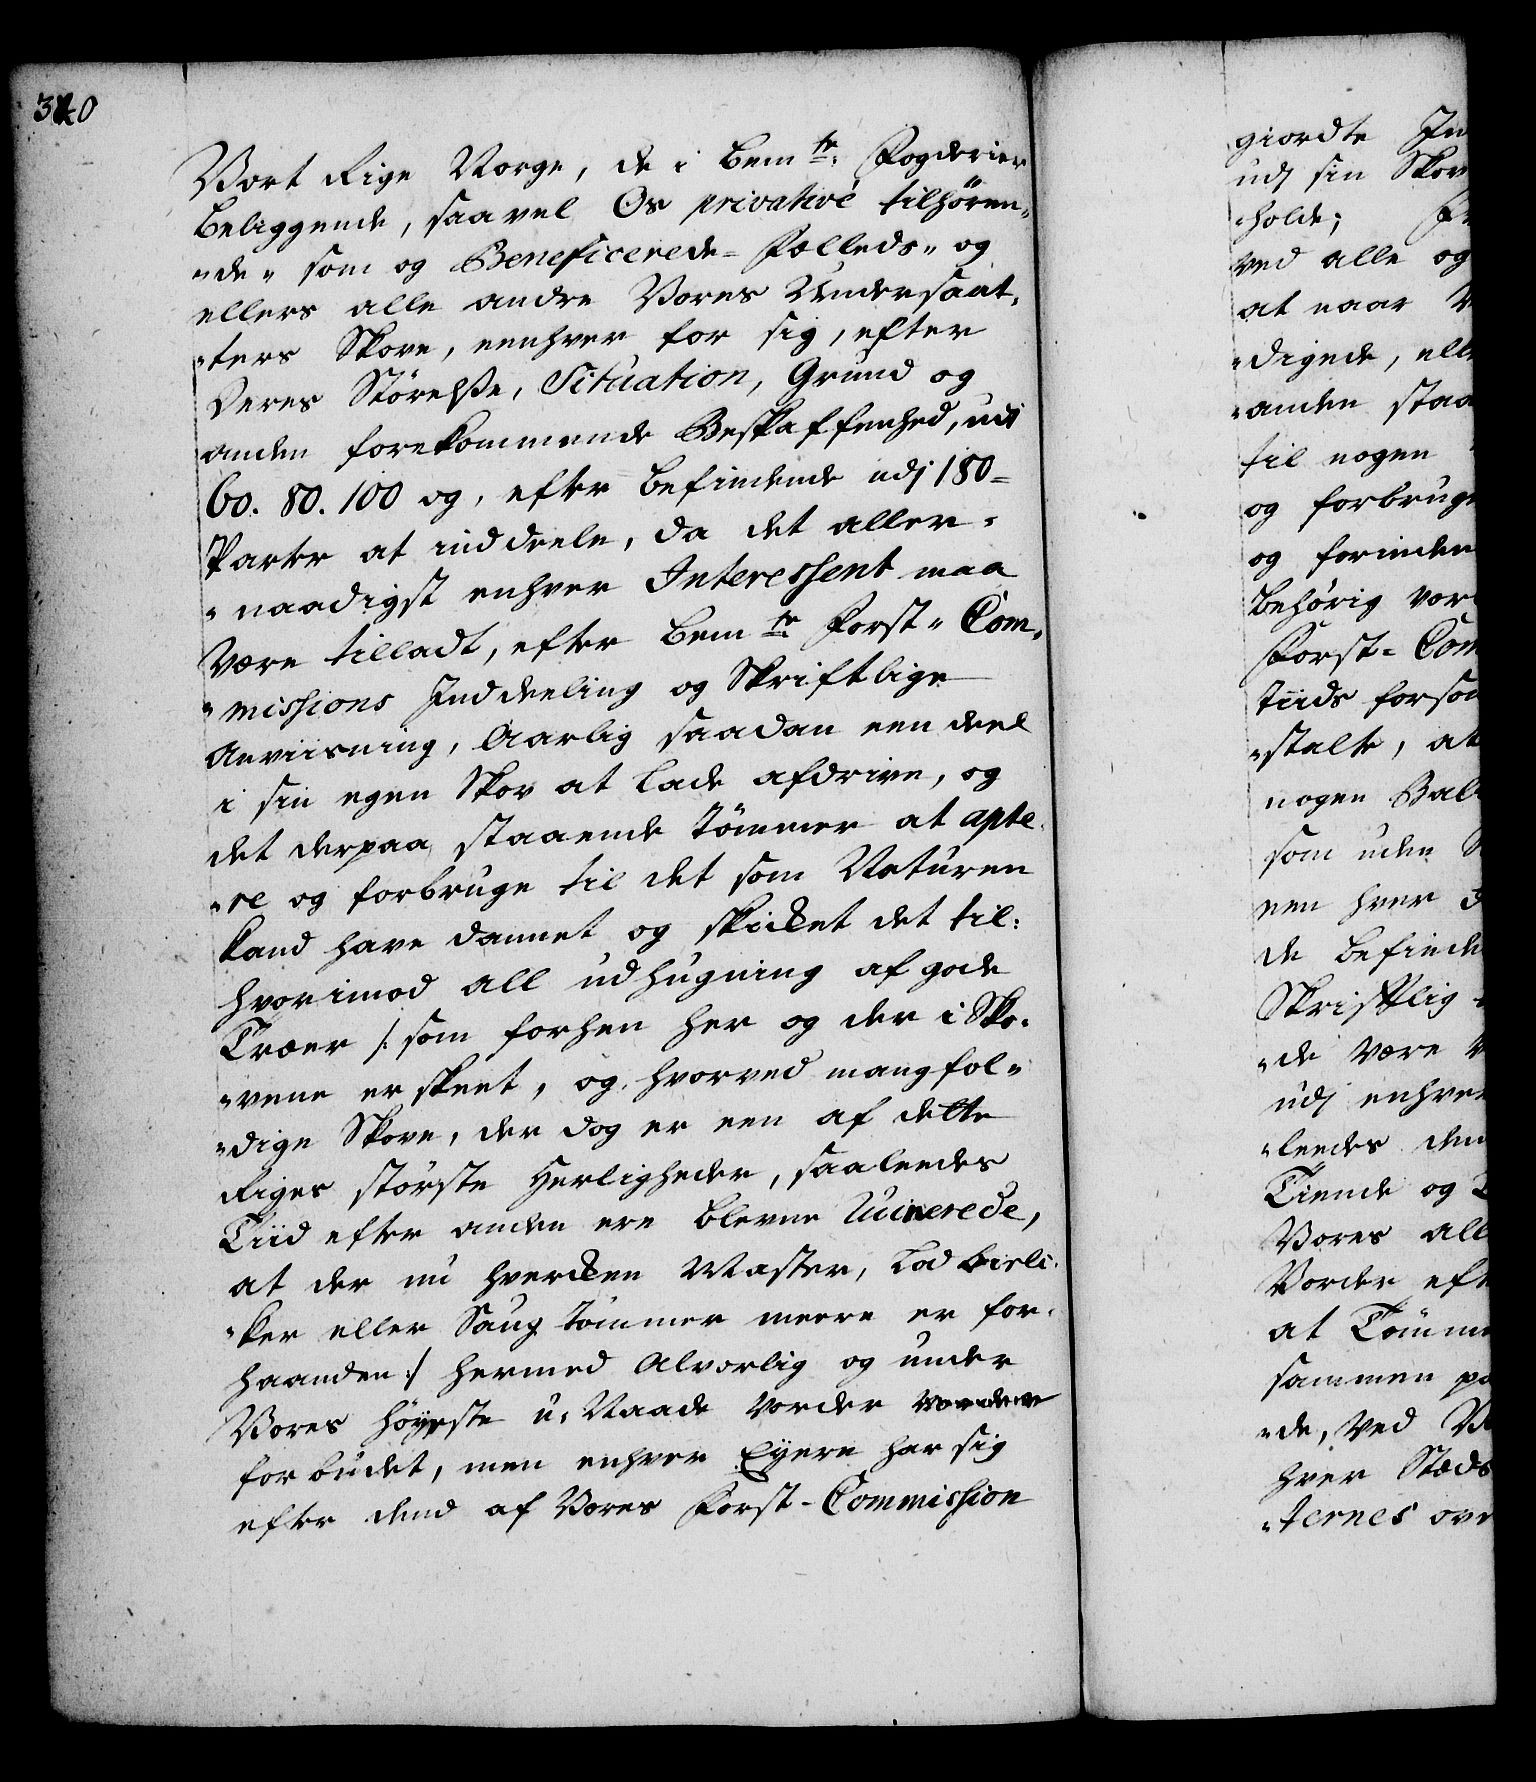 320
Vort Rige Norge, de i bem.te Fogderier
beliggende, saavel Os privativé tilhören„
„de„ som og Beneficerede- Fælleds„ og
ellers alle andre Vores Undersaat„
„ters Skove, eenhver for sig, efter
deres Störelße, Situation, Grund og
anden forekommende Beskaffenhed, udj
60. 80. 100 og, efter befindende udj 180-
Parter at inddeele, da det aller„
„naadigst enhver Interessent maa
være tilladt, efter bem.te Forst„ Com„
„missions Inddeeling og Skriftlige
Anviisning, Aarlig saadan een deel
i sin egen Skov at lade afdrive, og
det derpaa staaende Tömmer at apte„
„re og forbruge til det som Naturen
kand have dannet og skicket det til:
hvorimod all udhugning af gode
Træer /: som forhen her og der i Sko„
„vene er skeet, og hvorved mangfol„
„dige Skove, der dog er een af dette
Riges störste Herligheder, saaleedes
Tiid efter anden ere blevne Ruinerede,
at der nu hvercken Master, Lod bieli„
„ker eller Saug Tömmer meere er for„
haanden :/ hermed Alvorlig og under
Vores höyeste u„ Naade vorder
forbudet, men enhver Eyere har sig
efter dend af Vores Forst-Commission
giordte In
udj sin Skov
holde;
ved alle og
at naar
„digede, ell
„anden staa
til nogen
og forbruge
og forinden
behörig vor
Forst- Com
tiids forsom
„stalte, at
nogen Bal
som uden
een hver
de befinde
Skriftlig
„de være
udj enhver
„leedes den
Tiende og
Vores all
Vorder eft
at Tömme
sammen pa
„de, ved
hver Stæds
„ternes ove